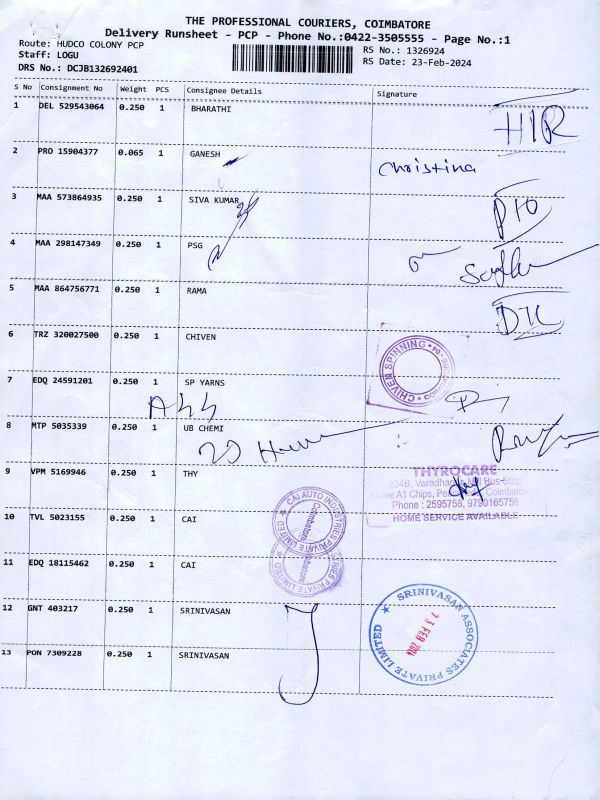 THE PROFESSIONAL COURIERS, COIMBATORE
Delivery Runsheet - PCP - Phone No.:0422-3505555 - Page No.:1
Route: HUDCO COLONY PCP RS No.: 1326924
Staff: LOGU RS Date: 23-Feb-2024
DRS No.: DCJB132692401
S No Consignment No Weight PCS Consignee Details Signature
1 DEL 529543064 0.250 1 BHARATHI
2 PRO 15904377 0.065 1 GANESH Christina
3 MAA 573864935 0.250 1 SIVA KUMAR
4 MAA 298147349 0.250 1 PSG
5 MAA 864756771 0.250 1 RAMA
6 TRZ 320027500 0.250 1 CHIVEN
CHIVEN SPINNING
7 EDQ 24591201 0.250 1 SP YARNS
8 MTP 5035339 0.250 1 UB CHEMI
9 VPM 5169946 0.250 1 THY
THYROCARE
234B, Bus Stop
Above A1 Chips, Coimbatore
Phone : 2595758, 9790165758
HOME SERVICE AVAILABLE
10 TVL 5023155 0.250 1 CAI
CAI AUTO INDUSTRIES PRIVATE LIMITED
Coimbatore
11 EDQ 18115462 0.250 1 CAI
12 GNT 403217 0.250 1 SRINIVASAN
SRINIVASAN ASSOCIATES PRIVATE LIMITED
23 FEB 2024
13 PON 7309228 0.250 1 SRINIVASAN